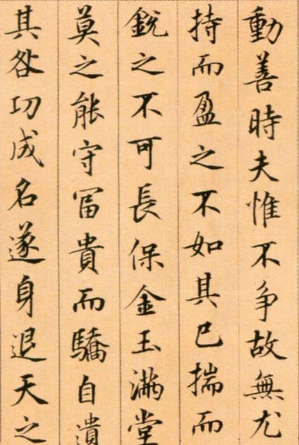 動善時夫惟不争故無尤
持而盈之不如其已揣而
銳之不可長保金玉滿堂
莫之能守富貴而驕自遺
其咎功成名遂身退天之